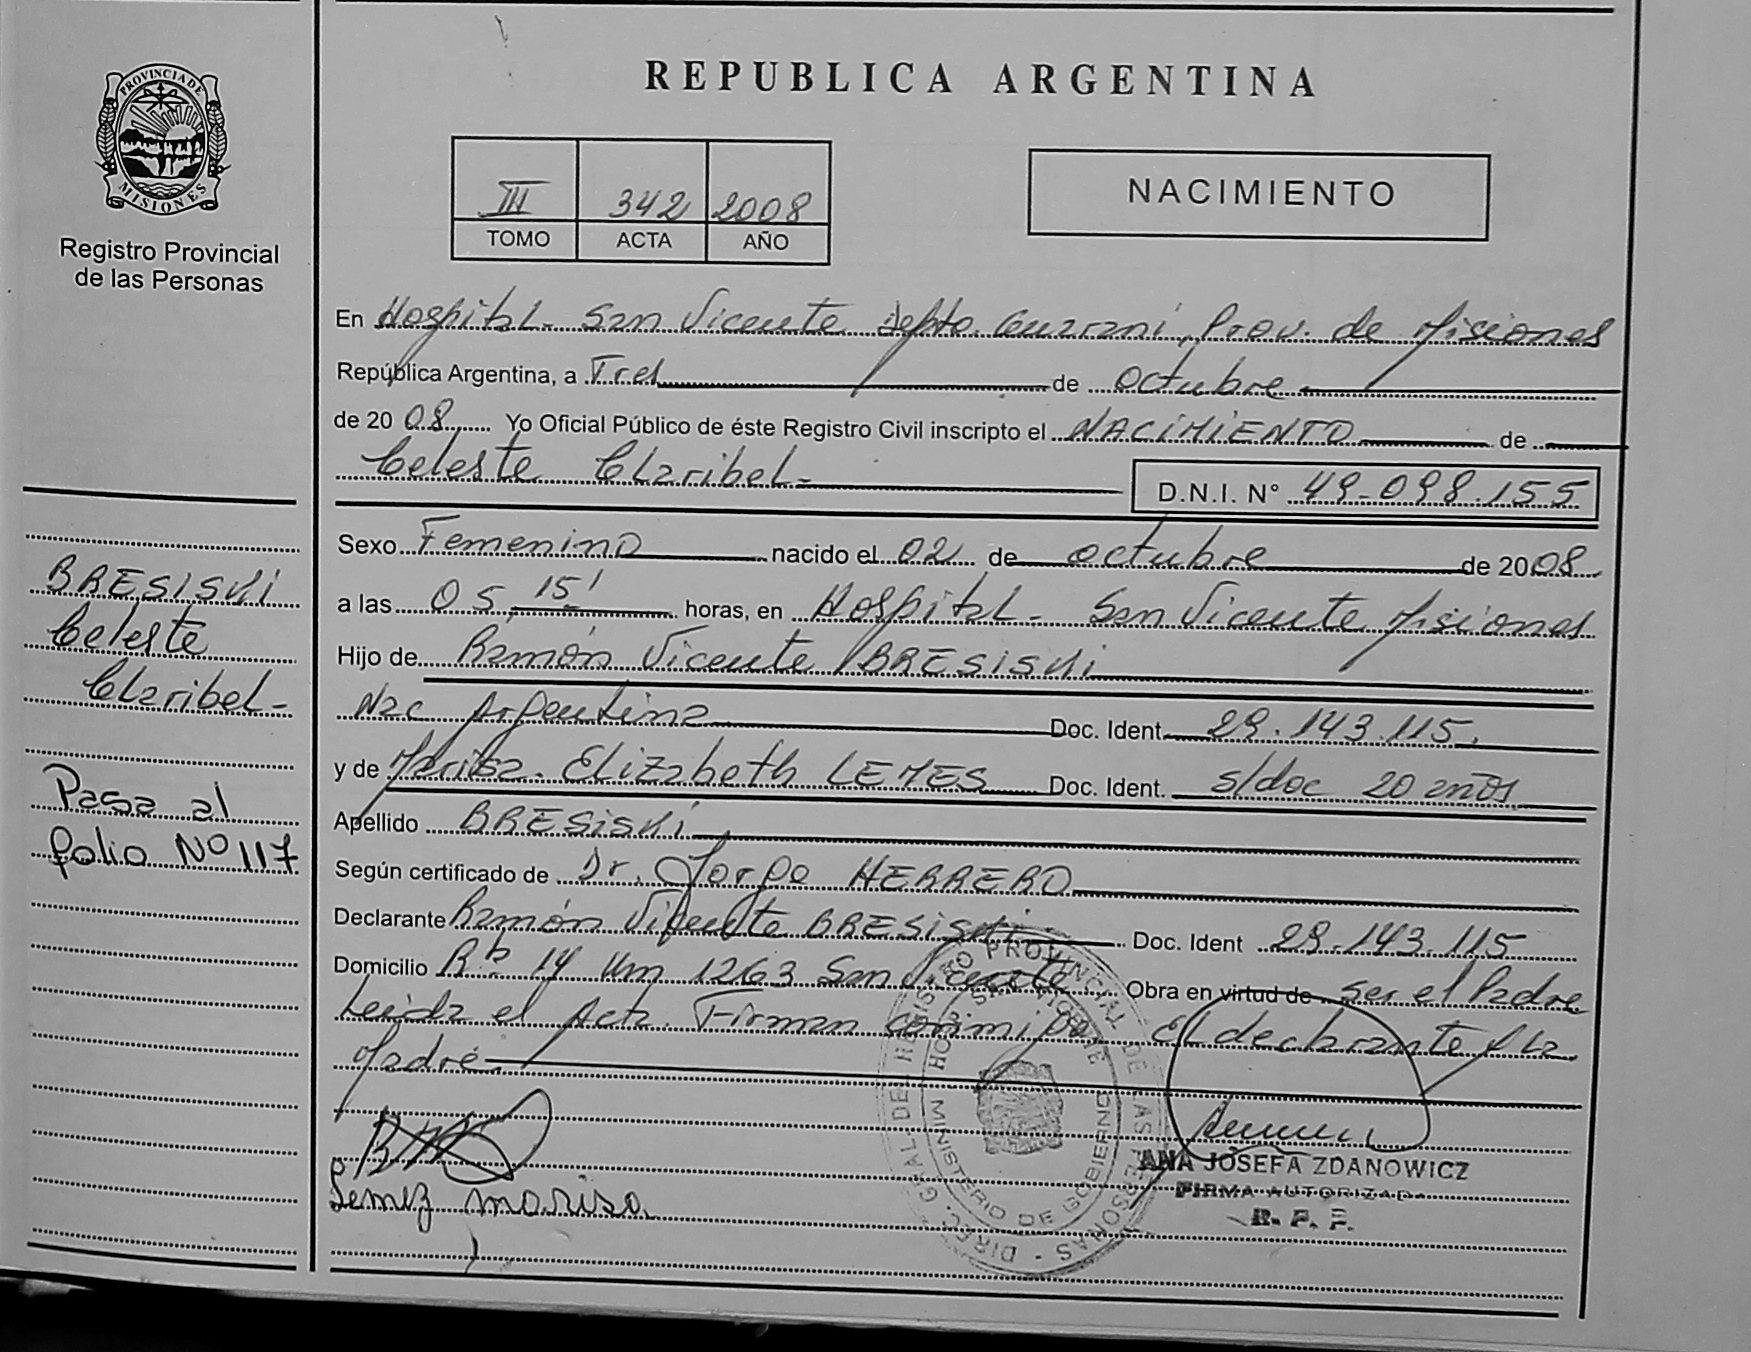 PROVINCIA DE
MISIONES
Registro Provincial
de las Personas
BRESISKI
Celeste
Claribel-
Pasa al
folio Nº 117
REPUBLICA ARGENTINA
III 342 2008
TOMO ACTA AÑO
NACIMIENTO
En Hospital - San Vicente Depto. Guaraní, Prov. de Misiones
República Argentina, a Tres de octubre
de 2008 Yo Oficial Público de éste Registro Civil inscripto el NACIMIENTO de
Celeste Claribel-
D.N.I. N° 49-098.155
Sexo Femenino nacido el 02 de octubre de 2008
a las 05 15' horas, en Hospital - San Vicente Misiones
Hijo de Ramón Vicente BRESISKI
Nac Argentina Doc. Ident. 29.143.115.
y de Elizabeth LEMES Doc. Ident. s/doc 20 años
Apellido BRESISKI
Según certificado de Dr. Jorge HERRERO
Declarante Ramón Vicente BRESISKI Doc. Ident 29.143.115
Domicilio Rta 14 Km 1263 San Vicente Obra en virtud de ser el Padre
Leida el Acta. Firman conmigo El declarante y la
Madre.
ANA JOSEFA ZDANOWICZ
FIRMA AUTORIZADA
R. P. P.
DIREC. GRAL DEL REGISTRO PROVINCIAL DE LAS PERSONAS
MINISTERIO DE GOBIERNO
HOSP. SAN VICENTE